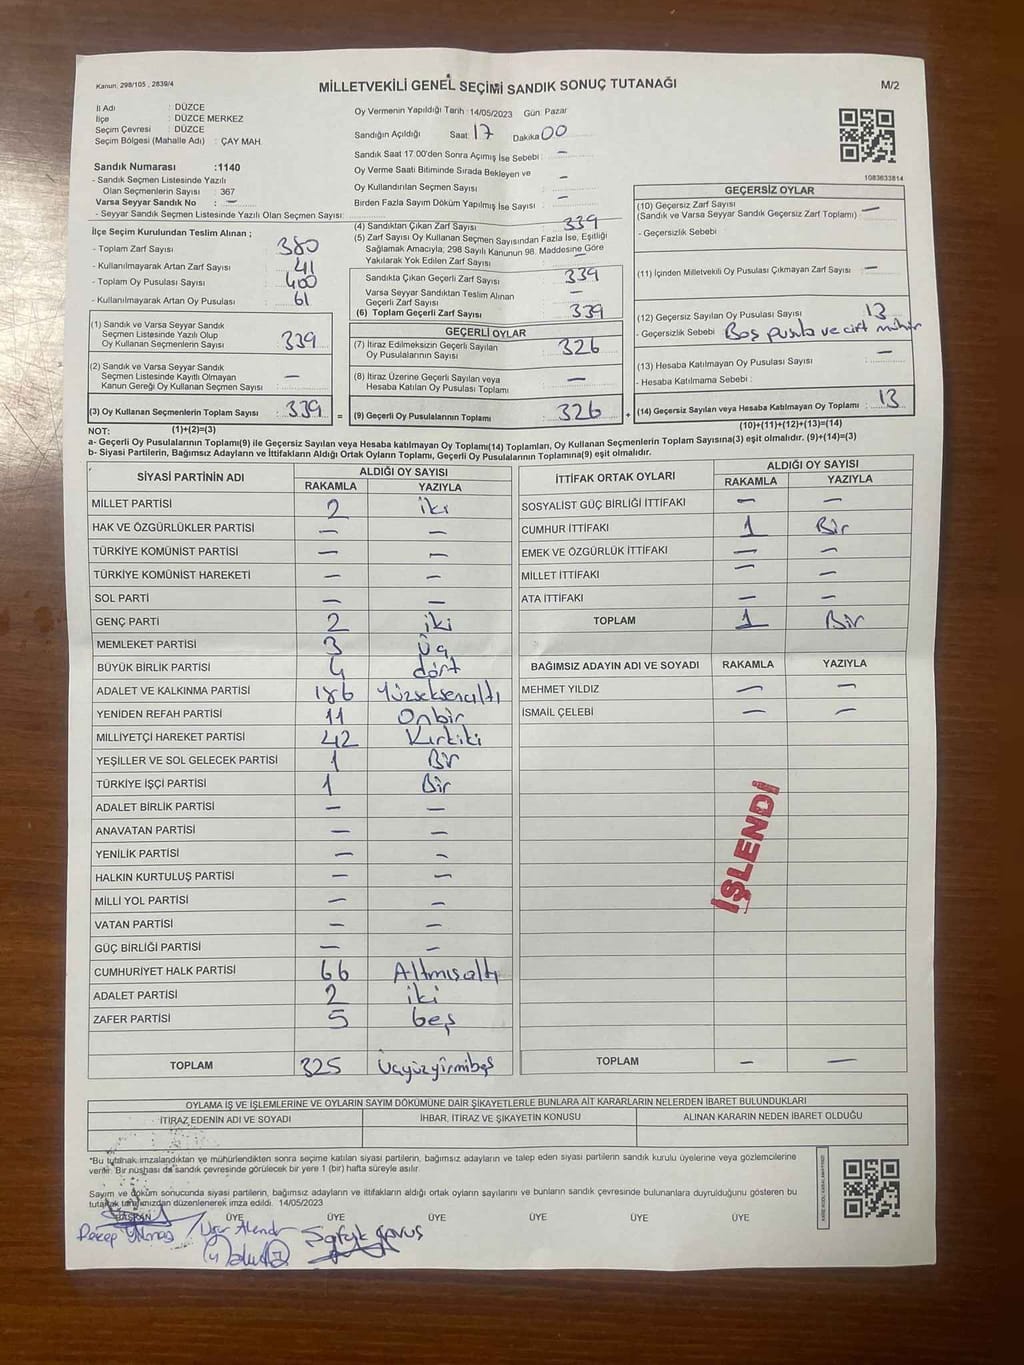 Kanun, 298/105 , 2839/4
MİLLETVEKİLİ GENEL SEÇİMİ SANDIK SONUÇ TUTANAĞI
M/2
İl Adı : DÜZCE
İlçe : DÜZCE MERKEZ
Seçim Çevresi : DÜZCE
Seçim Bölgesi (Mahalle Adı) : ÇAY MAH.
Oy Vermenin Yapıldığı Tarih :14/05/2023 Gün: Pazar
Sandığın Açıldığı Saat: 17 Dakika: 00
Sandık Saat 17:00'den Sonra Açımış İse Sebebi : —
Oy Verme Saati Bitiminde Sırada Bekleyen ve
Oy Kullandırılan Seçmen Sayısı —
Birden Fazla Sayım Döküm Yapılmış İse Sayısı : —
1083633814
Sandık Numarası :1140
- Sandık Seçmen Listesinde Yazılı
Olan Seçmenlerin Sayısı : 367
Varsa Seyyar Sandık No : —
- Seyyar Sandık Seçmen Listesinde Yazılı Olan Seçmen Sayısı:
İlçe Seçim Kurulundan Teslim Alınan ;
- Toplam Zarf Sayısı 380
- Kullanılmayarak Artan Zarf Sayısı 41
- Toplam Oy Pusulası Sayısı 400
- Kullanılmayarak Artan Oy Pusulası 61
(1) Sandık ve Varsa Seyyar Sandık
Seçmen Listesinde Yazılı Olup
Oy Kullanan Seçmenlerin Sayısı 339
(2) Sandık ve Varsa Seyyar Sandık
Seçmen Listesinde Kayıtlı Olmayan
Kanun Gereği Oy Kullanan Seçmen Sayısı —
(3) Oy Kullanan Seçmenlerin Toplam Sayısı 339 =
(4) Sandıktan Çıkan Zarf Sayısı 339
(5) Zarf Sayısı Oy Kullanan Seçmen Sayısından Fazla İse, Eşitliği
Sağlamak Amacıyla, 298 Sayılı Kanunun 98. Maddesine Göre
Yakılarak Yok Edilen Zarf Sayısı —
Sandıkta Çıkan Geçerli Zarf Sayısı 339
Varsa Seyyar Sandıktan Teslim Alınan
Geçerli Zarf Sayısı —
(6) Toplam Geçerli Zarf Sayısı 339
GEÇERLİ OYLAR
(7) İtiraz Edilmeksizin Geçerli Sayılan
Oy Pusulalarının Sayısı 326
(8) İtiraz Üzerine Geçerli Sayılan veya
Hesaba Katılan Oy Pusulası Toplamı —
(9) Geçerli Oy Pusulalarının Toplamı 326 +
GEÇERSİZ OYLAR
(10) Geçersiz Zarf Sayısı —
(Sandık ve Varsa Seyyar Sandık Geçersiz Zarf Toplamı)
- Geçersizlik Sebebi
(11) İçinden Milletvekili Oy Pusulası Çıkmayan Zarf Sayısı —
(12) Geçersiz Sayılan Oy Pusulası Sayısı 13
- Geçersizlik Sebebi Boş pusula ve cift mühür
(13) Hesaba Katılmayan Oy Pusulası Sayısı —
- Hesaba Katılmama Sebebi :
(14) Geçersiz Sayılan veya Hesaba Katılmayan Oy Toplamı 13
NOT: (1)+(2)=(3)
(10)+(11)+(12)+(13)=(14)
a- Geçerli Oy Pusulalarının Toplamı(9) ile Geçersiz Sayılan veya Hesaba katılmayan Oy Toplamı(14) Toplamları, Oy Kullanan Seçmenlerin Toplam Sayısına(3) eşit olmalıdır. (9)+(14)=(3)
b- Siyasi Partilerin, Bağımsız Adayların ve İttifakların Aldığı Ortak Oyların Toplamı, Geçerli Oy Pusulalarının Toplamına(9) eşit olmalıdır.
SİYASİ PARTİNİN ADI ALDIĞI OY SAYISI
RAKAMLA YAZIYLA
MİLLET PARTİSİ 2 iki
HAK VE ÖZGÜRLÜKLER PARTİSİ — —
TÜRKİYE KOMÜNİST PARTİSİ — —
TÜRKİYE KOMÜNİST HAREKETİ — —
SOL PARTİ — —
GENÇ PARTİ 2 iki
MEMLEKET PARTİSİ 3 Üç
BÜYÜK BİRLİK PARTİSİ 4 dört
ADALET VE KALKINMA PARTİSİ 186 Yüzseksenaltı
YENİDEN REFAH PARTİSİ 11 Onbir
MİLLİYETÇİ HAREKET PARTİSİ 42 Kırkiki
YEŞİLLER VE SOL GELECEK PARTİSİ 1 Bir
TÜRKİYE İŞÇİ PARTİSİ 1 Bir
ADALET BİRLİK PARTİSİ — —
ANAVATAN PARTİSİ — —
YENİLİK PARTİSİ — —
HALKIN KURTULUŞ PARTİSİ — —
MİLLİ YOL PARTİSİ — —
VATAN PARTİSİ — —
GÜÇ BİRLİĞİ PARTİSİ — —
CUMHURİYET HALK PARTİSİ 66 Altmışaltı
ADALET PARTİSİ 2 iki
ZAFER PARTİSİ 5 beş
TOPLAM 325 Üçyüzyirmibeş
İTTİFAK ORTAK OYLARI ALDIĞI OY SAYISI
RAKAMLA YAZIYLA
SOSYALİST GÜÇ BİRLİĞİ İTTİFAKI — —
CUMHUR İTTİFAKI 1 Bir
EMEK VE ÖZGÜRLÜK İTTİFAKI — —
MİLLET İTTİFAKI — —
ATA İTTİFAKI — —
TOPLAM 1 Bir
BAĞIMSIZ ADAYIN ADI VE SOYADI RAKAMLA YAZIYLA
MEHMET YILDIZ — —
İSMAİL ÇELEBİ — —
İŞLENDİ
TOPLAM — —
OYLAMA İŞ VE İŞLEMLERİNE VE OYLARIN SAYIM DÖKÜMÜNE DAİR ŞİKAYETLERLE BUNLARA AİT KARARLARIN NELERDEN İBARET BULUNDUKLARI
İTİRAZ EDENİN ADI VE SOYADI İHBAR, İTİRAZ VE ŞİKAYETİN KONUSU ALINAN KARARIN NEDEN İBARET OLDUĞU
*Bu tutanak imzalandıktan ve mühürlendikten sonra seçime katılan siyasi partilerin, bağımsız adayların ve talep eden siyasi partilerin sandık kurulu üyelerine veya gözlemcilerine
verilir. Bir nüshası da sandık çevresinde görülecek bir yere 1 (bir) hafta süreyle asılır.
Sayım ve döküm sonucunda siyasi partilerin, bağımsız adayların ve ittifakların aldığı ortak oyların sayılarını ve bunların sandık çevresinde bulunanlara duyrulduğunu gösteren bu
tutanak tarafımızdan düzenlenerek imza edildi. 14/05/2023
BAŞKAN ÜYE ÜYE ÜYE ÜYE ÜYE ÜYE
Recep Yılmaz